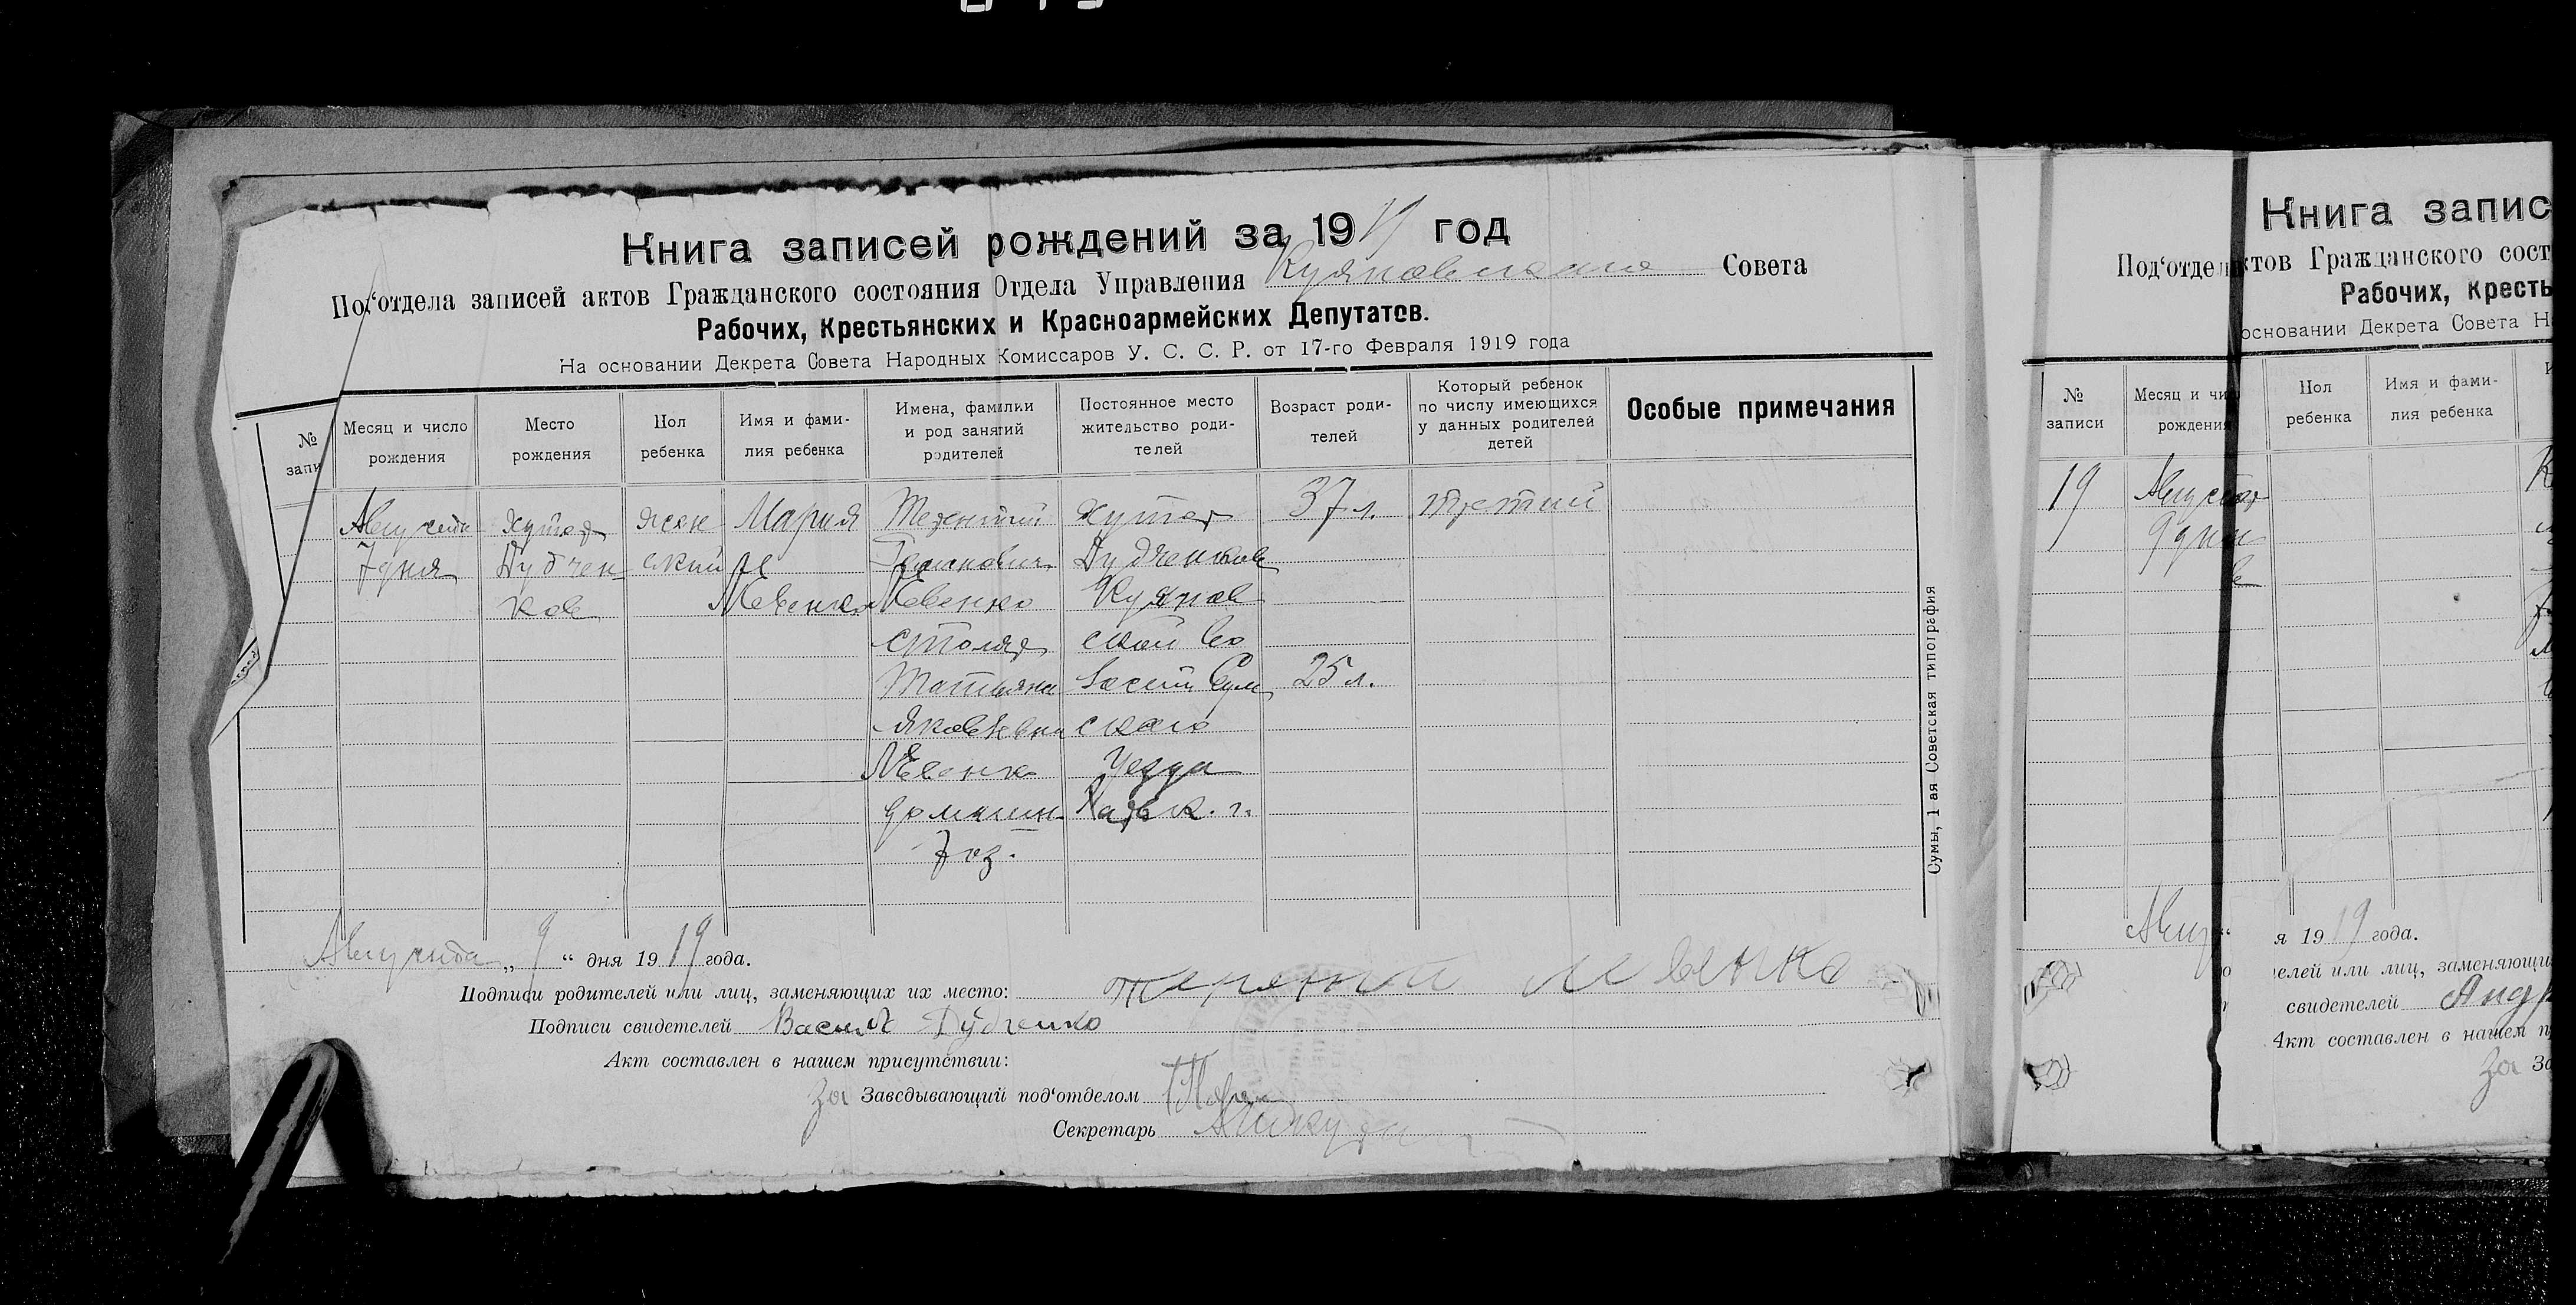 Книга записей рождений за 1919 год
Под‘отдела записей актов Гражданского состояния Отдела Управления Куяновского Совета
Рабочих, Крестьянских и Красноармейских Депутатов.
На основании Декрета Совета Народных Комиссаров У. С. С. Р. от 17-го Февраля 1919 года
№ запи
Месяц и число рождения
Место рождения
Пол ребенка
Имя и фами-
лия ребенка
Имена, фамилии
и род занятий
родителей
Постоянное место
жительство роди-
телей
Возраст роди-
телей
Который ребенок
по числу имеющихся
у данных родителей
детей
Особые примечания
Августа
7 дня
Хутор
Дудчен
ков
жен
ский
Мария
Левенко
Терентий
Левенко
столяр
Татьяна
Яковлевна
Левенко
домашн.
хоз.
хутор
Дудченков
Куянов
ской Во
лости Сум
ского
Уезда
Харьк. г.
37 л.
25 л.
третий
Сумы, 1 ая Советская типография
Августа „ 9 “ дня 1919 года.
Подписи родителей или лиц, заменяющих их место: терентий левенко
Подписи свидетелей Василь Дудченко
Акт составлен в нашем присутствии:
За Заведывающий под‘отделом
Секретарь
Книга запис
Под‘отде ктов Гражданского сост
Рабочих, Кресть
основании Декрета Совета Н
№
записи
Месяц и чи
рождения
Пол
ребенка
Имя и фами-
лия ребенка
19
Августа
9 дня
Авгу “ я 1919 года.
елей или лиц, заменяющи
свидетелей Андр
Акт составлен в нашем п
За За